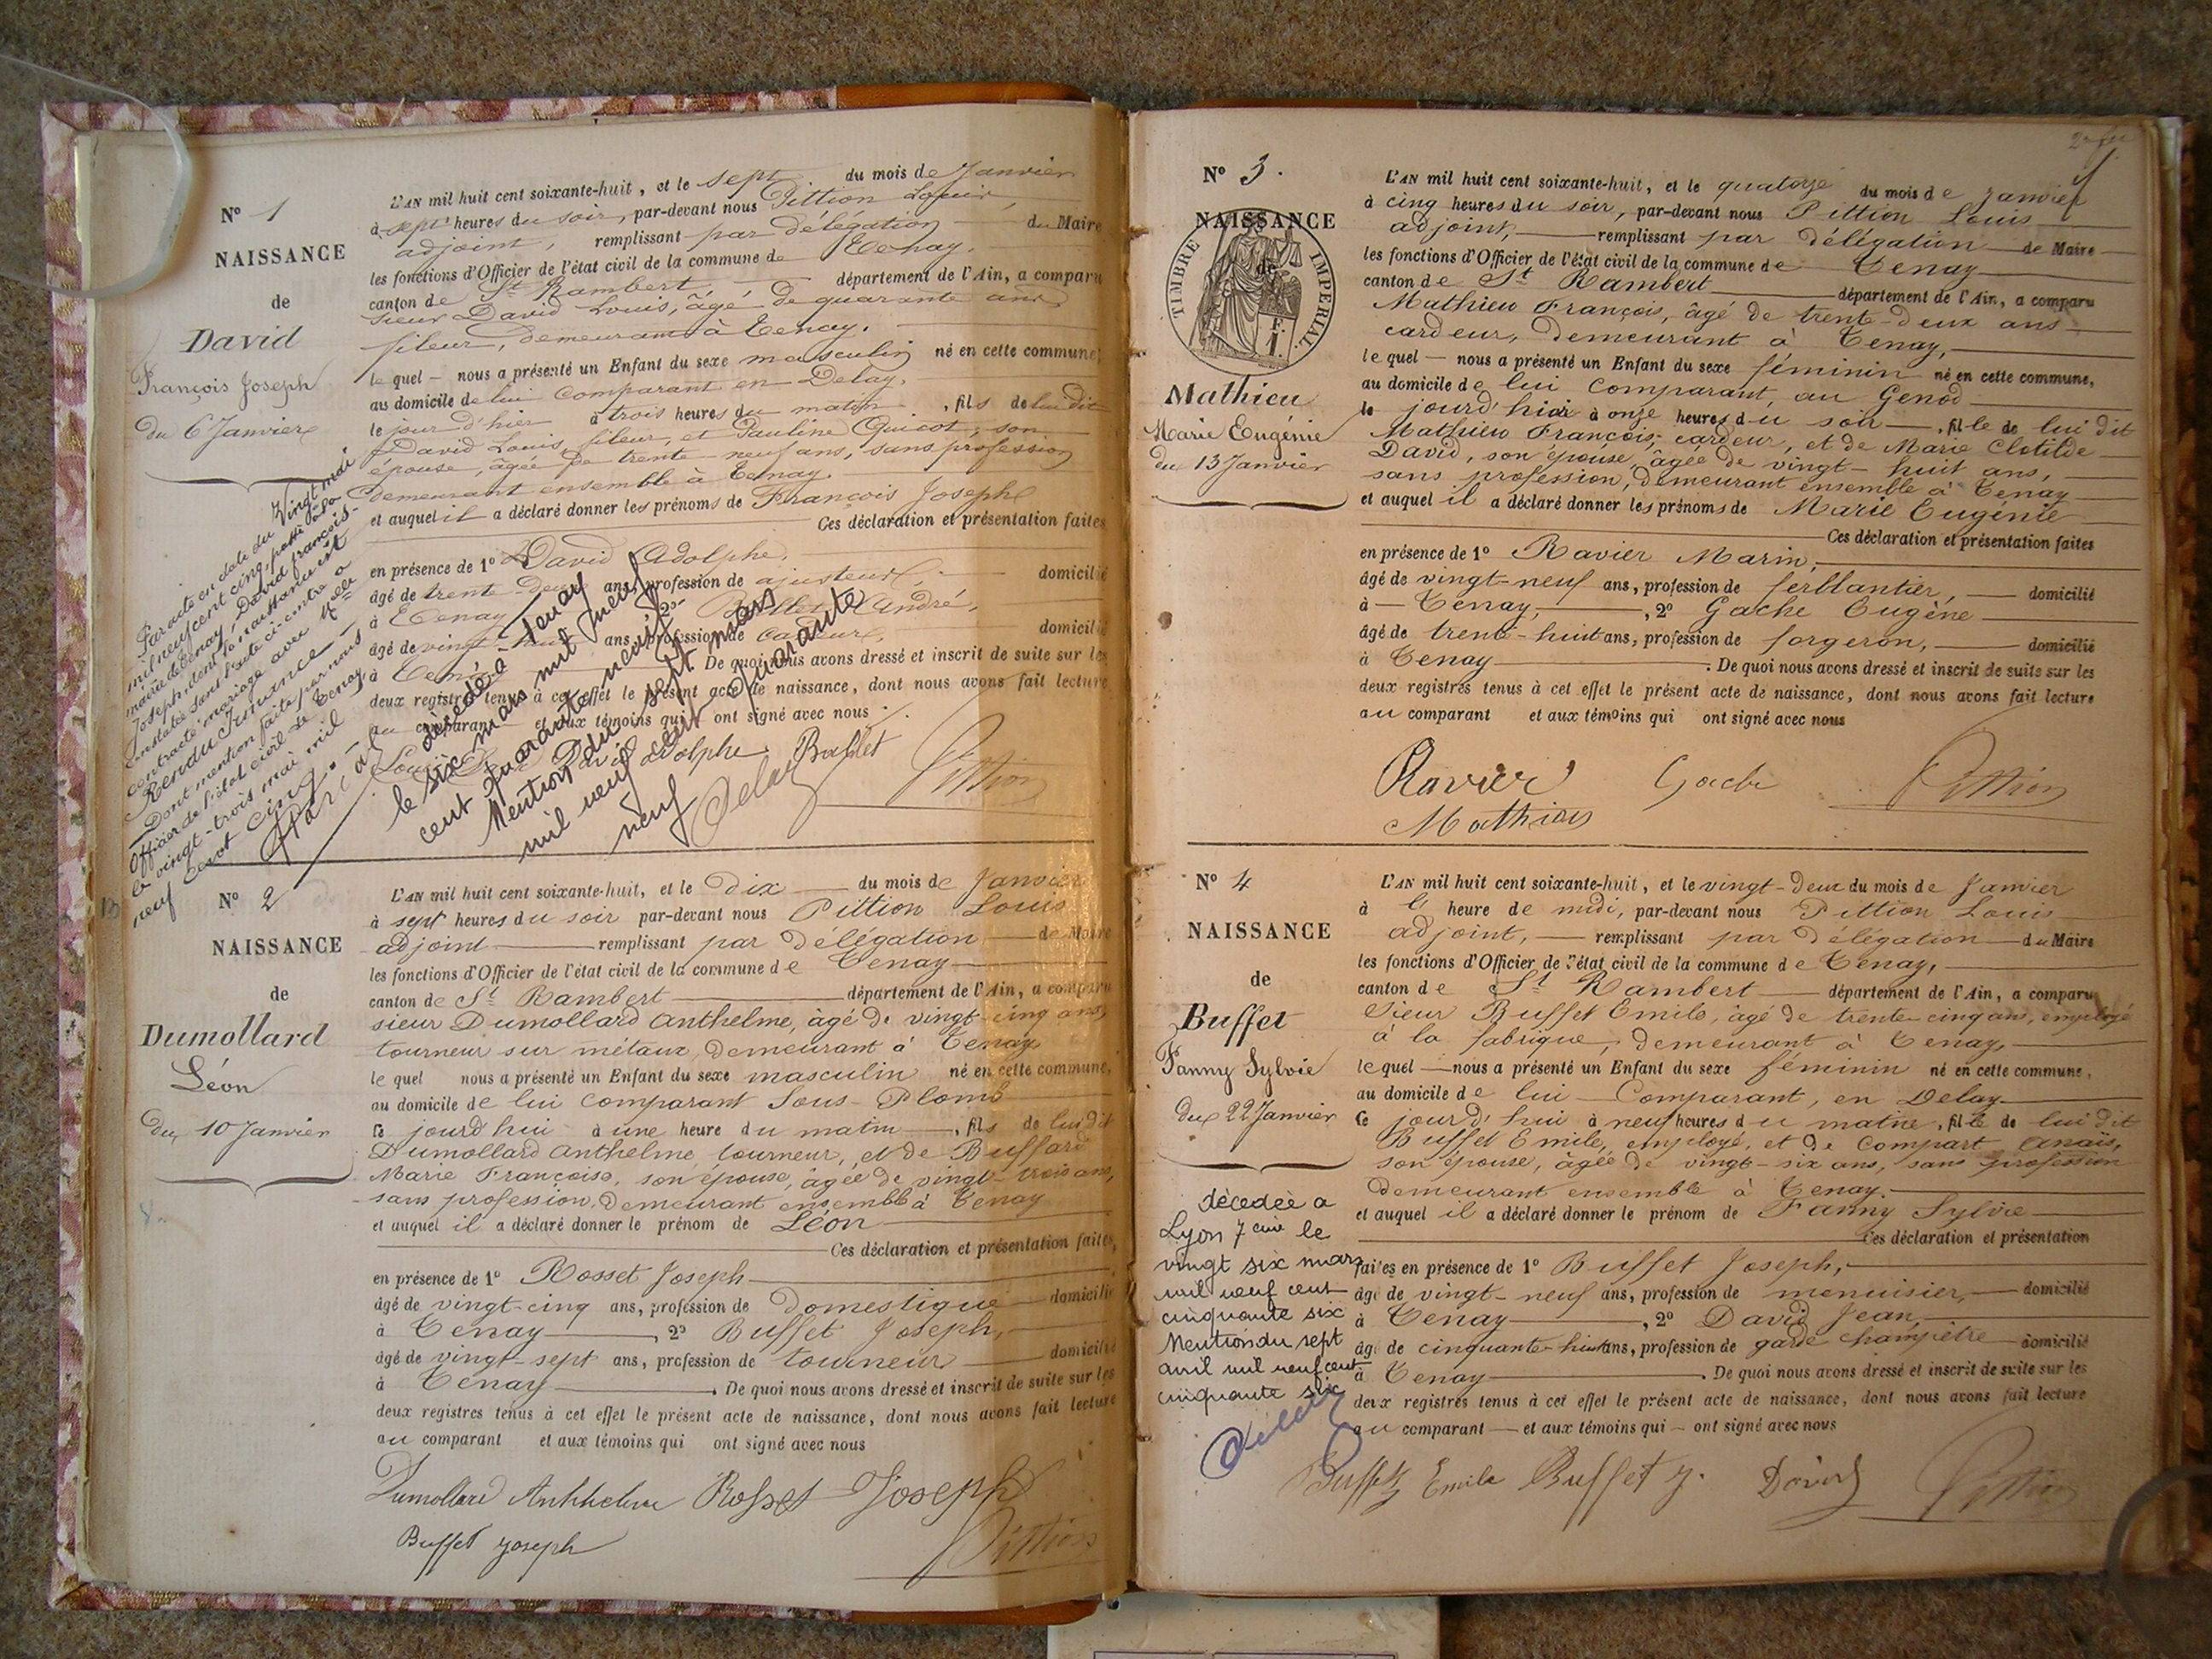 N° 1
NAISSANCE
de
David
François Joseph
du 6 Janvier
L'AN mil huit cent soixante-huit, et le sept du mois de Janvier
à sept heures du soir, par-devant nous Pittion Louis,
adjoint, remplissant par délégation du Maire
les fonctions d'Officier de l'état civil de la commune de Tenay,
canton de St Rambert département de l'Ain, a comparu
sieur David Louis, âgé de quarante ans
fileur, demeurant à Tenay,
lequel nous a présenté un Enfant du sexe masculin né en cette commune,
au domicile de lui comparant en Delay,
le jour d'hier à trois heures du matin, fils de lui dit
David Louis, fileur, et Pauline son
épouse, âgée de trente-neuf ans, sans profession
demeurant ensemble à Tenay.
et auquel il a déclaré donner les prénoms de François Joseph
Ces déclaration et présentation faites
en présence de 1° David Adolphe,
âgé de trente-deux ans, profession de ajusteur, domicilié
à Tenay 2° André,
âgé de vingt-huit ans, profession de cardeur, domicilié
à Tenay De quoi nous avons dressé et inscrit de suite sur les
deux registres tenus à cet effet le présent acte de naissance, dont nous avons fait lecture
au comparant et aux témoins qui ont signé avec nous
Louis David Adolphe Buffet Pittion
Par acte en date du Vingt mai
mil neuf cent cinq, passé à la
mairie de Tenay, David françois-
Joseph, dont la naissance est
constatée dans l'acte ci-contre a
contracté mariage avec Melle
Dont mention faite par nous
Officier de l'état civil de Tenay
le vingt-trois mai mil
neuf cent cinq.
décédé à Tenay
le six mars mil neuf
cent quarante neuf
Mention du sept mars
mil neuf cent quarante
neuf
Delay
N° 2
NAISSANCE
de
Dumollard
Léon
du 10 Janvier
L'AN mil huit cent soixante-huit, et le dix du mois de Janvier
à sept heures du soir par-devant nous Pittion Louis
adjoint remplissant par délégation de Maire
les fonctions d'Officier de l'état civil de la commune de Tenay
canton de St Rambert département de l'Ain, a comparu
sieur Dumollard Anthelme, âgé de vingt-cinq ans,
tourneur sur métaux, demeurant à Tenay
lequel nous a présenté un Enfant du sexe masculin né en cette commune,
au domicile de lui comparant Sous-Plomb
ce jourd'hui à une heure du matin, fils de lui dit
Dumollard Anthelme, tourneur, et de Buffard
Marie Françoise, son épouse, âgée de vingt-trois ans,
sans profession, demeurant ensemble à Tenay
et auquel il a déclaré donner le prénom de Léon
Ces déclaration et présentation faites,
en présence de 1° Rosset Joseph
âgé de vingt-cinq ans, profession de domestique domicilié
à Tenay, 2° Buffet Joseph,
âgé de vingt-sept ans, profession de tourneur domicilié
à Tenay. De quoi nous avons dressé et inscrit de suite sur les
deux registres tenus à cet effet le présent acte de naissance, dont nous avons fait lecture
au comparant et aux témoins qui ont signé avec nous
Dumollard Anthelme Rosset Joseph
Buffet Joseph Pittion
N° 3.
NAISSANCE
de
TIMBRE IMPERIAL
Mathieu
Marie Eugénie
du 13 Janvier
L'AN mil huit cent soixante-huit, et le quatorze du mois de Janvier
à cinq heures du soir, par-devant nous Pittion Louis
adjoint, remplissant par délégation de Maire
les fonctions d'Officier de l'état civil de la commune de Tenay
canton de St Rambert département de l'Ain, a comparu
Mathieu François, âgé de trente-deux ans
cardeur, demeurant à Tenay,
lequel nous a présenté un Enfant du sexe féminin né en cette commune,
au domicile de lui comparant, au Genod
le jourd'hier à onze heures du soir, fille de lui dit
Mathieu François, cardeur, et de Marie Clotilde
David, son épouse, âgée de vingt-huit ans,
sans profession, demeurant ensemble à Tenay
et auquel il a déclaré donner les prénoms de Marie Eugénie
Ces déclaration et présentation faites
en présence de 1° Ravier Marin,
âgé de vingt-neuf ans, profession de ferblantier, domicilié
à Tenay, 2° Gache Eugène
âgé de trente-huit ans, profession de forgeron, domicilié
à Tenay. De quoi nous avons dressé et inscrit de suite sur les
deux registres tenus à cet effet le présent acte de naissance, dont nous avons fait lecture
au comparant et aux témoins qui ont signé avec nous
Ravier Gache Pittion
Mathieu
N° 4
NAISSANCE
de
Buffet
Fanny Sylvie
du 22 Janvier
L'AN mil huit cent soixante-huit, et le vingt-deux du mois de Janvier
à l' heure de midi, par-devant nous Pittion Louis
adjoint, remplissant par délégation du Maire
les fonctions d'Officier de l'état civil de la commune de Tenay,
canton de St Rambert département de l'Ain, a comparu
Sieur Buffet Emile, âgé de trente-cinq ans, employé
à la fabrique, demeurant à Tenay,
lequel nous a présenté un Enfant du sexe féminin né en cette commune,
au domicile de lui Comparant, en Delay
ce jourd'hui à neuf heures du matin, fille de lui dit
Buffet Emile, employé, et de Compart Anaïs,
son épouse, âgée de vingt-six ans, sans profession
demeurant ensemble à Tenay.
et auquel il a déclaré donner le prénom de Fanny Sylvie
Ces déclaration et présentation
faites en présence de 1° Buffet Joseph,
âgé de vingt-neuf ans, profession de menuisier, domicilié
à Tenay, 2° David Jean,
âgé de cinquante-huit ans, profession de garde champêtre domicilié
à Tenay. De quoi nous avons dressé et inscrit de suite sur les
deux registres tenus à cet effet le présent acte de naissance, dont nous avons fait lecture
au comparant et aux témoins qui ont signé avec nous
Buffet Emile Buffet J. David Pittion
décédée à
Lyon 7eme le
vingt six mars
mil neuf cent
cinquante six
Mention du sept
avril mil neuf cent
cinquante six
Delay